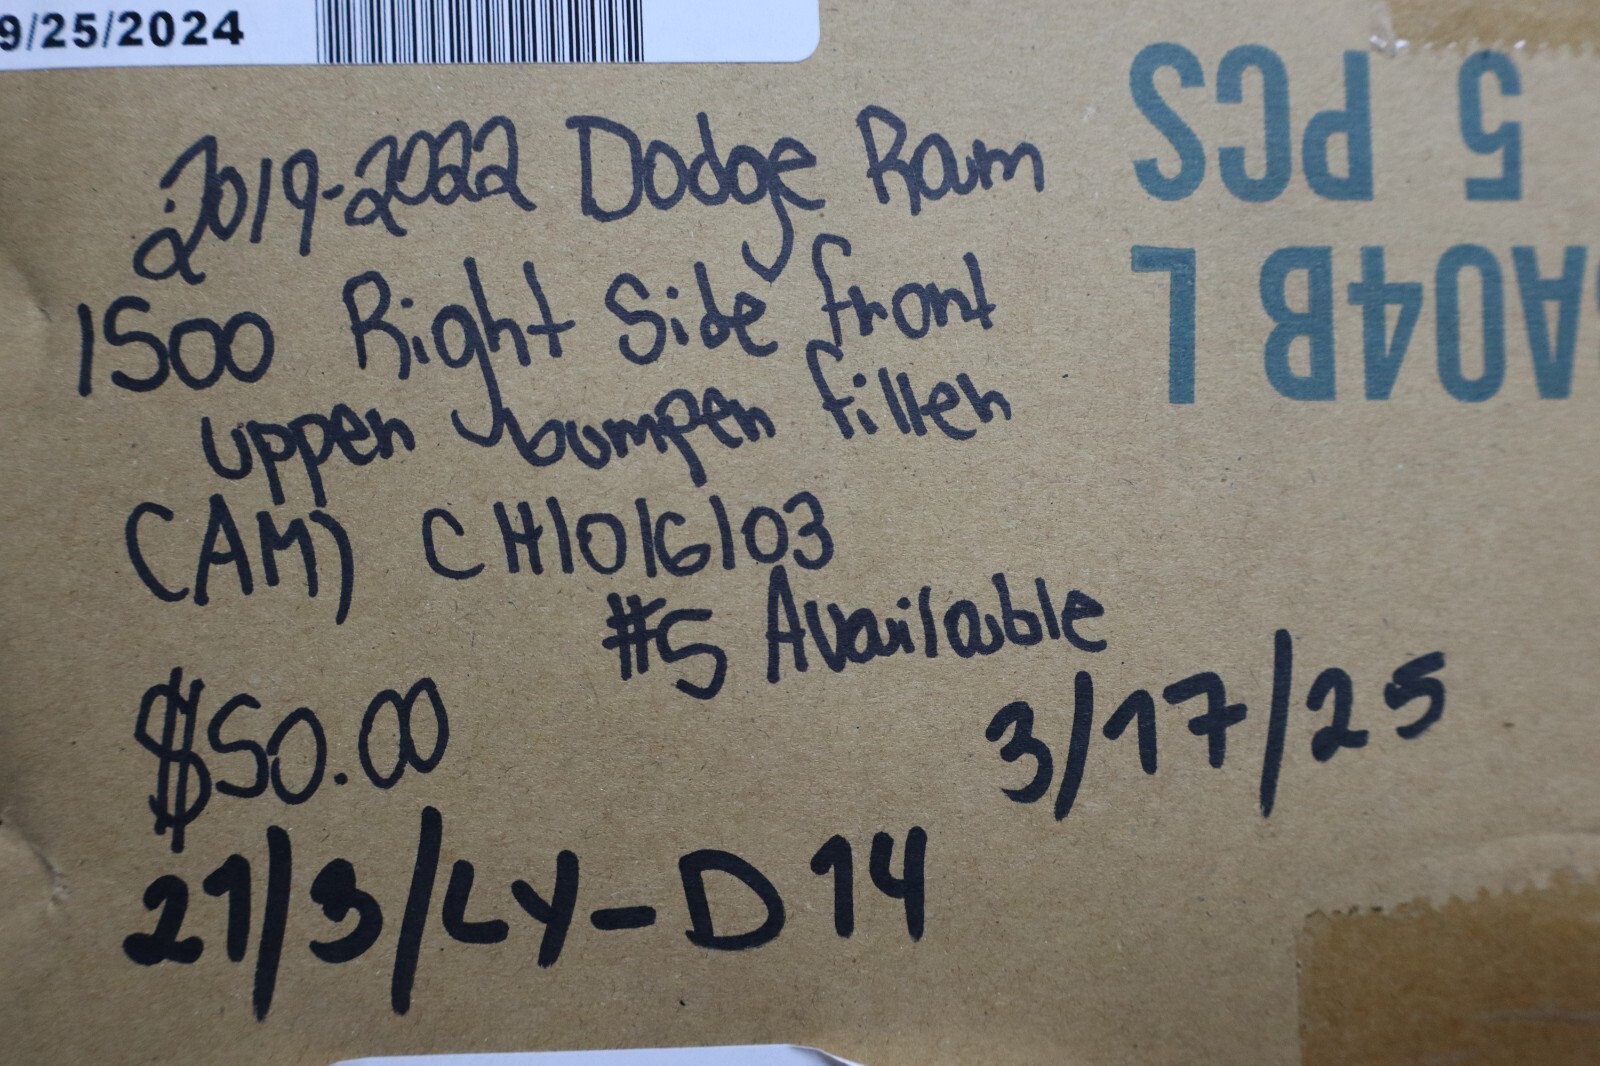 9/25/2024
2019-2022 Dodge Ram
1500 Right Side front
upper bumper filler
(AM) CH1016103
#5 Available
$50.00
3/17/25
21/3/LY-D14
A04B L
5 PCS